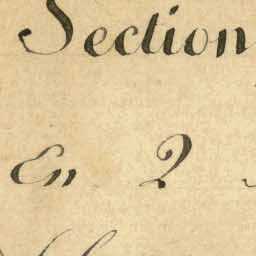 Section
En 2